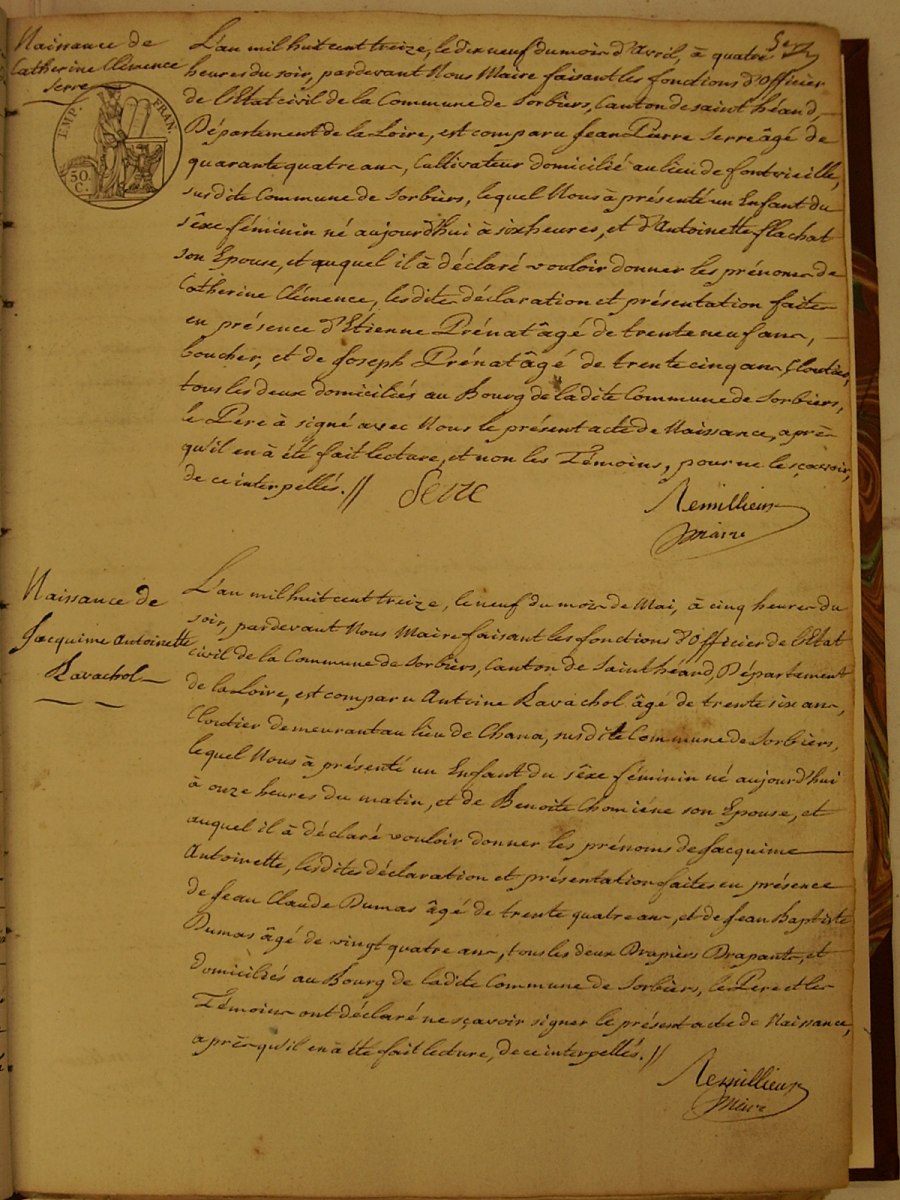 Naissance de
Catherine Clémence
Serre
EMP. FRAN.
50.
C.
L'an mil huit cent treize, le dix neuf du mois d'Avril, à quatre
heures du soir, pardevant Nous Maire faisant les fonctions d'Officier
de l'Etat civil de la Commune de Sorbiers, Canton de saint héand,
Département de la Loire, est comparu Jean Pierre Serre âgé de
quarante quatre ans, Cultivateur domicilié au lieu de fontvieille,
susdite Commune de Sorbiers, lequel Nous à présenté un Enfant du
sêxe féminin né aujourd'hui à six heures, et d'Antoinette flachat
son Epouse, et auquel il à déclaré vouloir donner les prénoms de
Catherine Clémence, les dites déclaration et présentation faites
en présence d'Etienne Prénat âgé de trente neuf ans,
boucher, et de Joseph Prénat âgé de trente cinq ans Cloutier,
tous les deux domiciliés au Bourg de ladite Commune de Sorbiers,
le Pere à signé avec Nous le présent acte de Naissance, après
qu'il en à été fait lecture, et non les Témoins, pour ne le sçavoir,
de ce interpellés. //
Serre
Remillieux
Maire
Naissance de
Jacquime Antoinette
Ravachol
L'an mil huit cent treize, le neuf du mois de Mai, à cinq heures du
soir, pardevant Nous Maire faisant les fonctions d'Officier de l'Etat
civil de la Commune de Sorbiers, Canton de Saint héand, Département
de la Loire, est comparu Antoine Ravachol âgé de trente six ans,
Cloutier demeurant au lieu de Chana, susdite Commune de Sorbiers,
lequel Nous à présenté un Enfant du sêxe féminin né aujourd'hui
à onze heures du matin, et de Benoite Chomiéne son Epouse, et
auquel il à déclaré vouloir donner les prénoms de Jacquime
Antoinette, lesdites déclaration et présentation faites en présence
de Jean Claude Dumas âgé de trente quatre ans, et de Jean Baptiste
Dumas âgé de vingt quatre ans, tous les deux Drapiers Drapants, et
domiciliés au Bourg de ladite Commune de Sorbiers, le Pere et les
Témoins ont déclaré ne sçavoir signer le présent acte de Naissance,
après qu'il en à été fait lecture, de ce interpellés. //
Remillieux
Maire